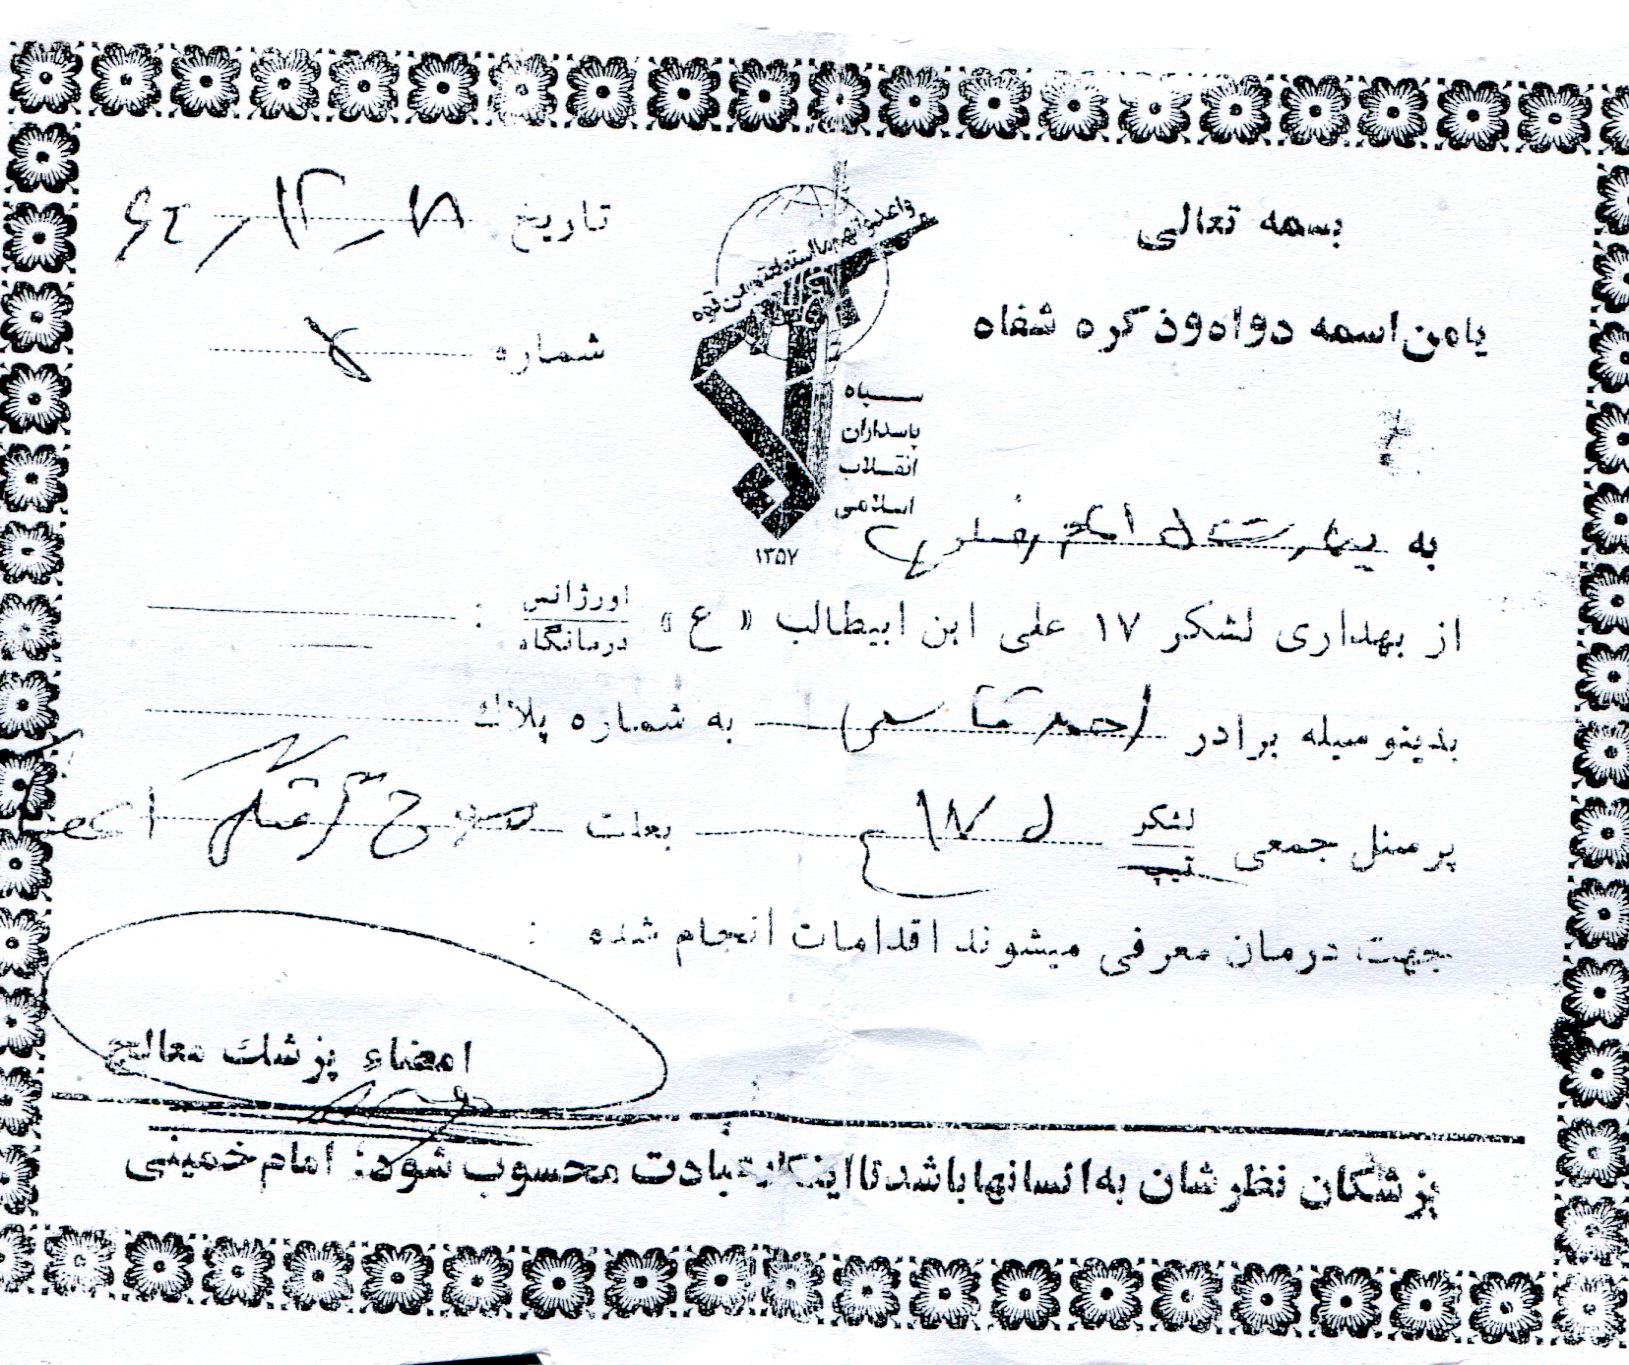 بسمه تعالی
یا من اسمه دواء و ذکره شفاء
تاریخ
شماره
واعدوا لهم ما استطعتم من قوه
سپاه
پاسداران
انقلاب
اسلامی
۱۳۵۷
به بیمارستان امام خمینی
از بهداری لشکر ۱۷ علی ابن ابیطالب «ع» اورژانس درمانگاه :
بدینوسیله برادر احمد قاسمی به شماره پلاک
پرسنل جمعی لشکر تیپ ل ۱۷ بعلت
جهت درمان معرفی میشوند اقدامات انجام شده :
امضاء پزشک معالج
پزشکان نظرشان به انسانها باشد تا اینکار عبادت محسوب شود: امام خمینی